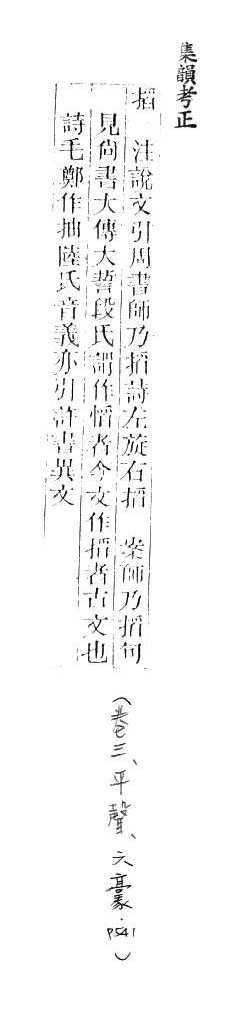 集韻考正
搯 注說文引周書師乃搯詩左旋右搯 案師乃搯句
見尙書大傳大誓段氏謂作慆者今文作搯者古文也
詩毛鄭作抽陸氏音義亦引許書異文
(卷三、平聲、六豪.P541)